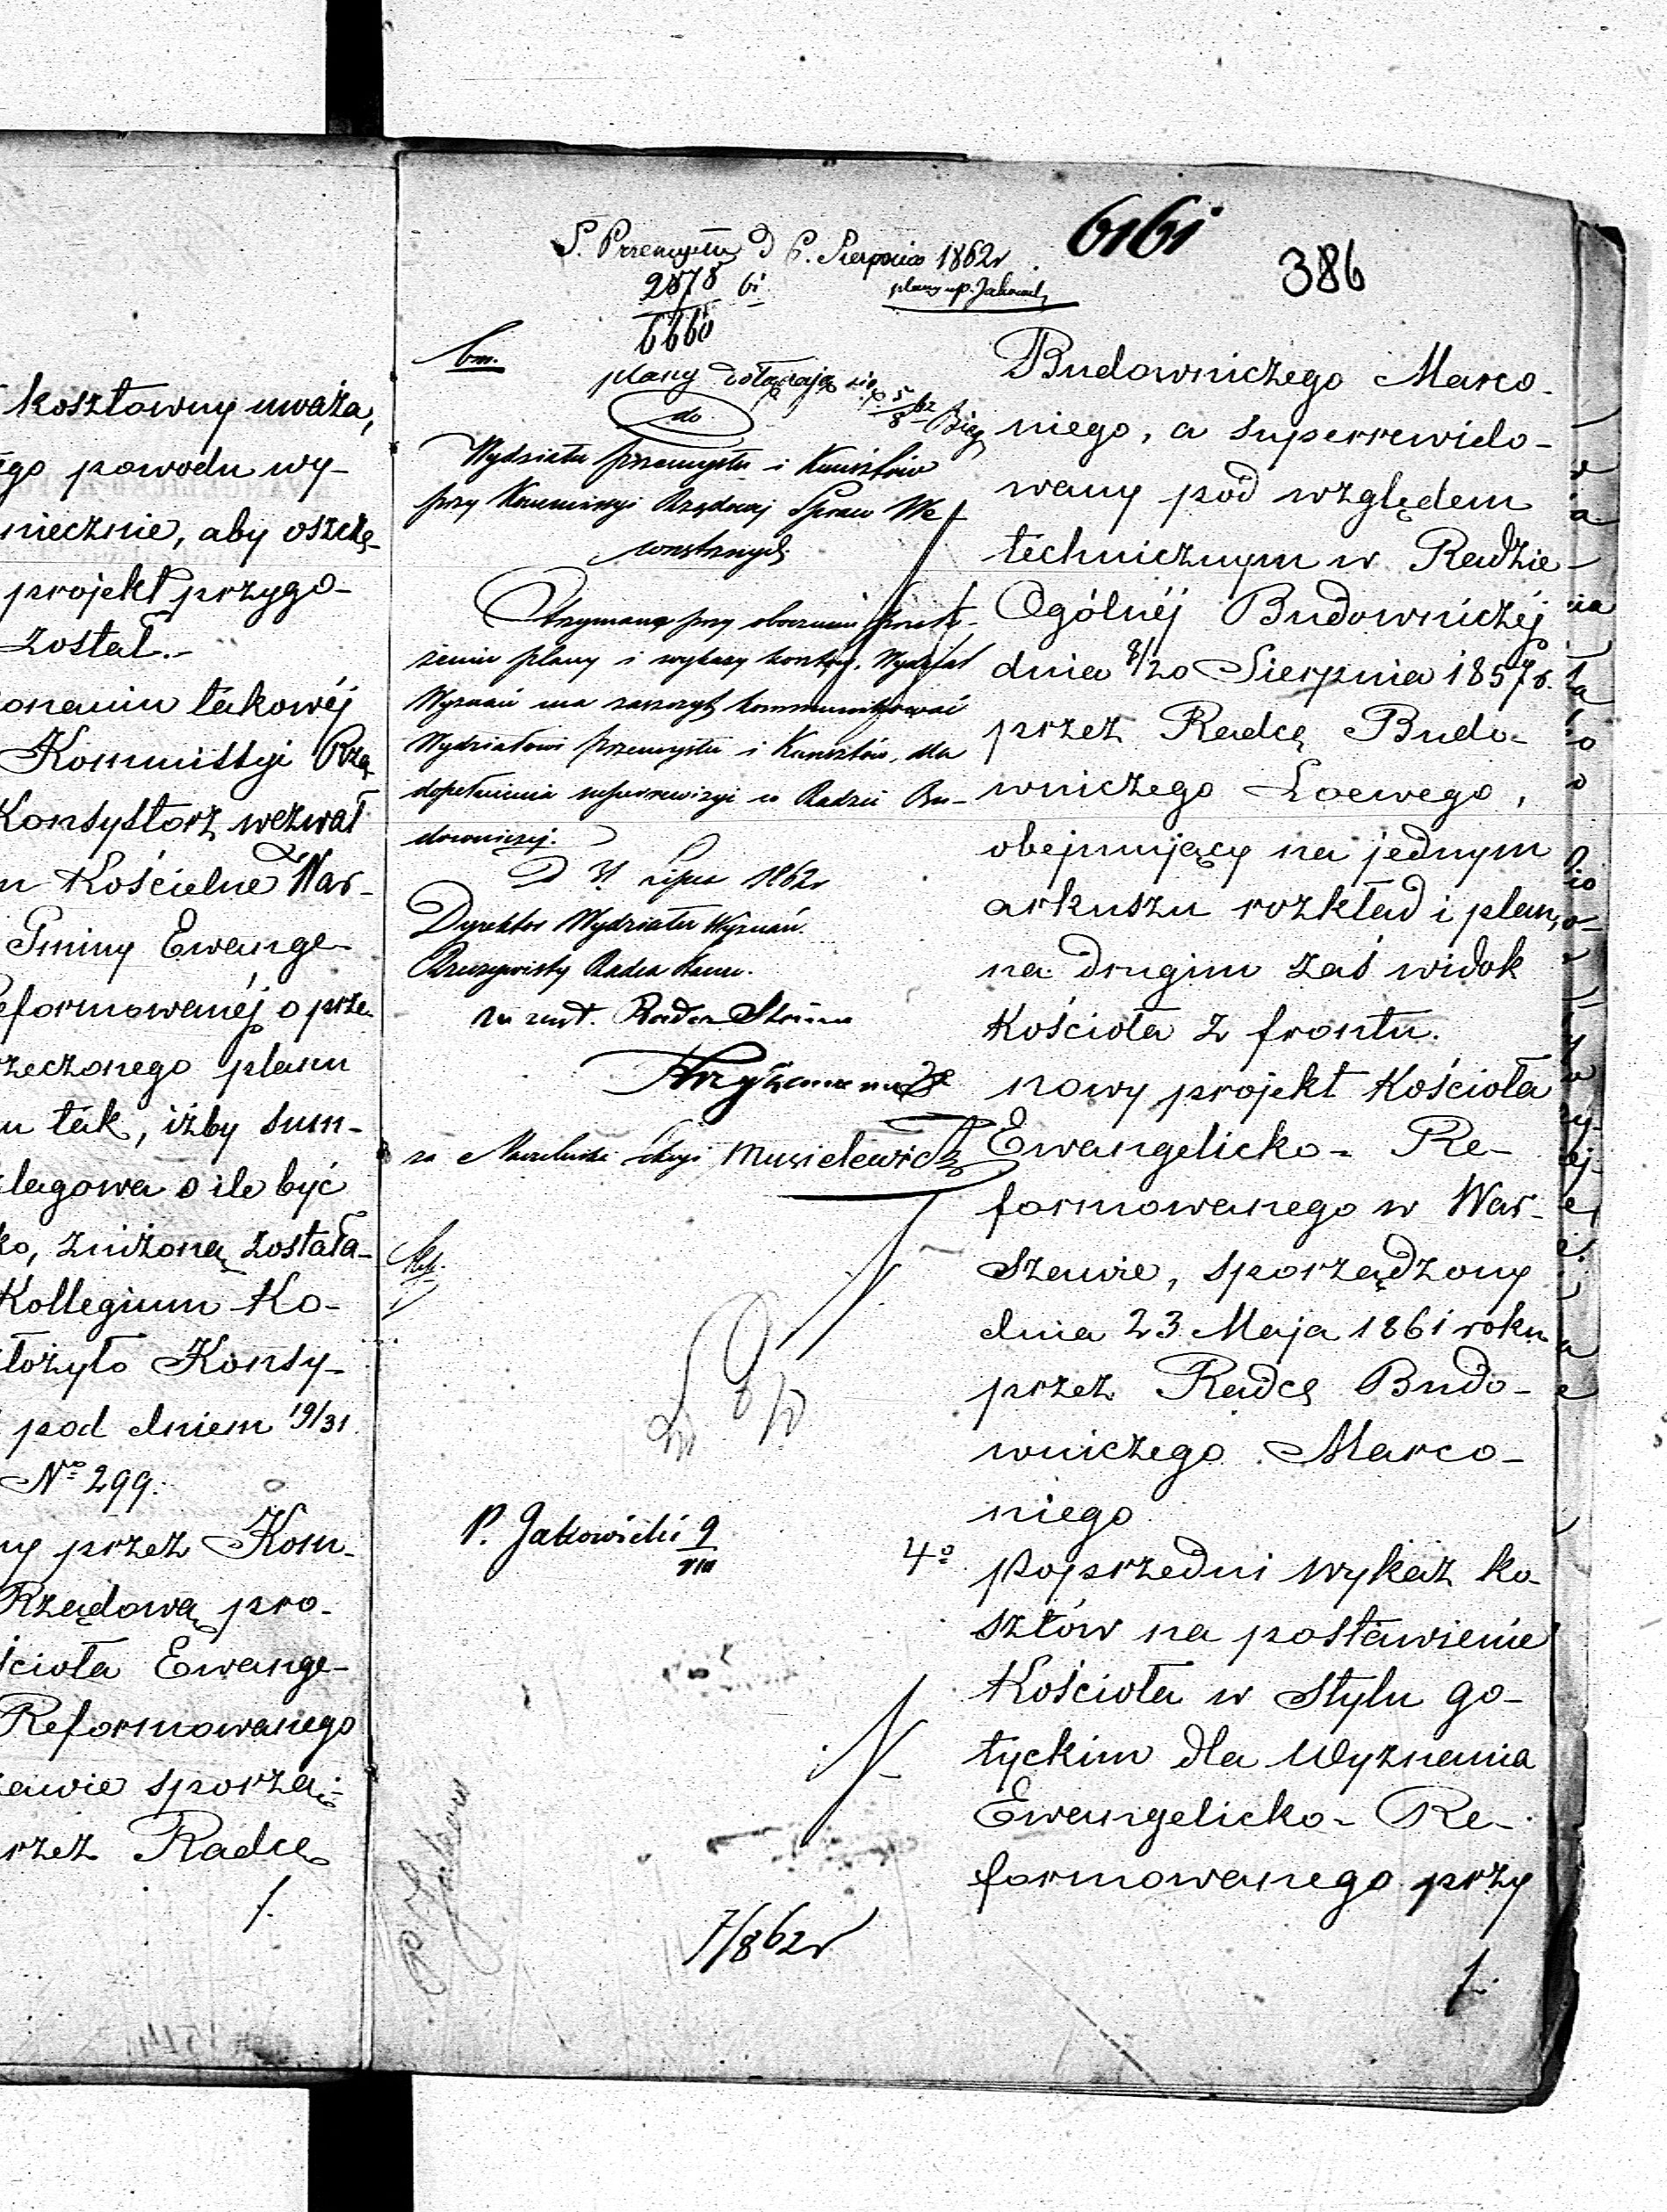 kosztowny uważa,
powodu wy-
niecznie, aby oszczę-
projekt przygo-
został.-
onaniu takowéj
Kommissyi Rzą-
Konsystorz wezwał
Kościelne War-
Gminy Ewange-
eformowanéj o prze-
rzeczonego planu
tak, iżby sum-
lagowa o ile być
ko, zniżoną została-
Kollegium Ko-
łożyło Konsy-
pod dniem 19/31.
No 299.
ny przez Kom-
Rządową pro-
ścioła Ewange-
Reformowanego
zawie sporzą-
rzez Radcę
/.
6161
386
S. Przemysłu D 6. Sierpnia 1862 r
2878 61
6660
plany dołączają się
do
Wydziału Przemysłu i Kunsztów
przy Kommissyi Rządowej Spraw We-
wnętrznych.
Otrzymane przy obecnem przeło-
żeniu plany i wykazy kosztów, Wydział
Wyznań ma zaszczyt kommunikować
Wydziałowi Przemysłu i Kunsztów, dla
dopełnienia superrewizyi w Radzie Bu-
downiczej.
D 31 Lipca 1862 r
Dyrektor Wydziału Wyznań.
Rzeczywisty Radca Stanu.
w zast. Radca Stanu
za Naczelnika Sekcyi Musielewicz
P. Jakowicki 9
VIII
7/8 62 r
Budowniczego Marco-
niego, a superrewido-
wany pod względem
technicznym w Radzie
Ogólnéj Budowniczéj
dnia 8/20 Sierpnia 1857 r.
przez Radcę Budo-
wniczego Loewego,
obejmujący na jednym
arkuszu rozkład i plan,
na drugim zaś widok
Kościoła z frontu.
nowy projekt Kościoła
Ewangelicko- Re-
formowanego w War-
szawie, sporządzony
dnia 23 Maja 1861 roku
przez Radcę Budo-
wniczego Marco-
niego
4o poprzedni wykaz ko-
sztów na postawienie
Kościoła w stylu go-
tyckim dla Wyznania
Ewangelicko- Re-
formowanego przy
/.